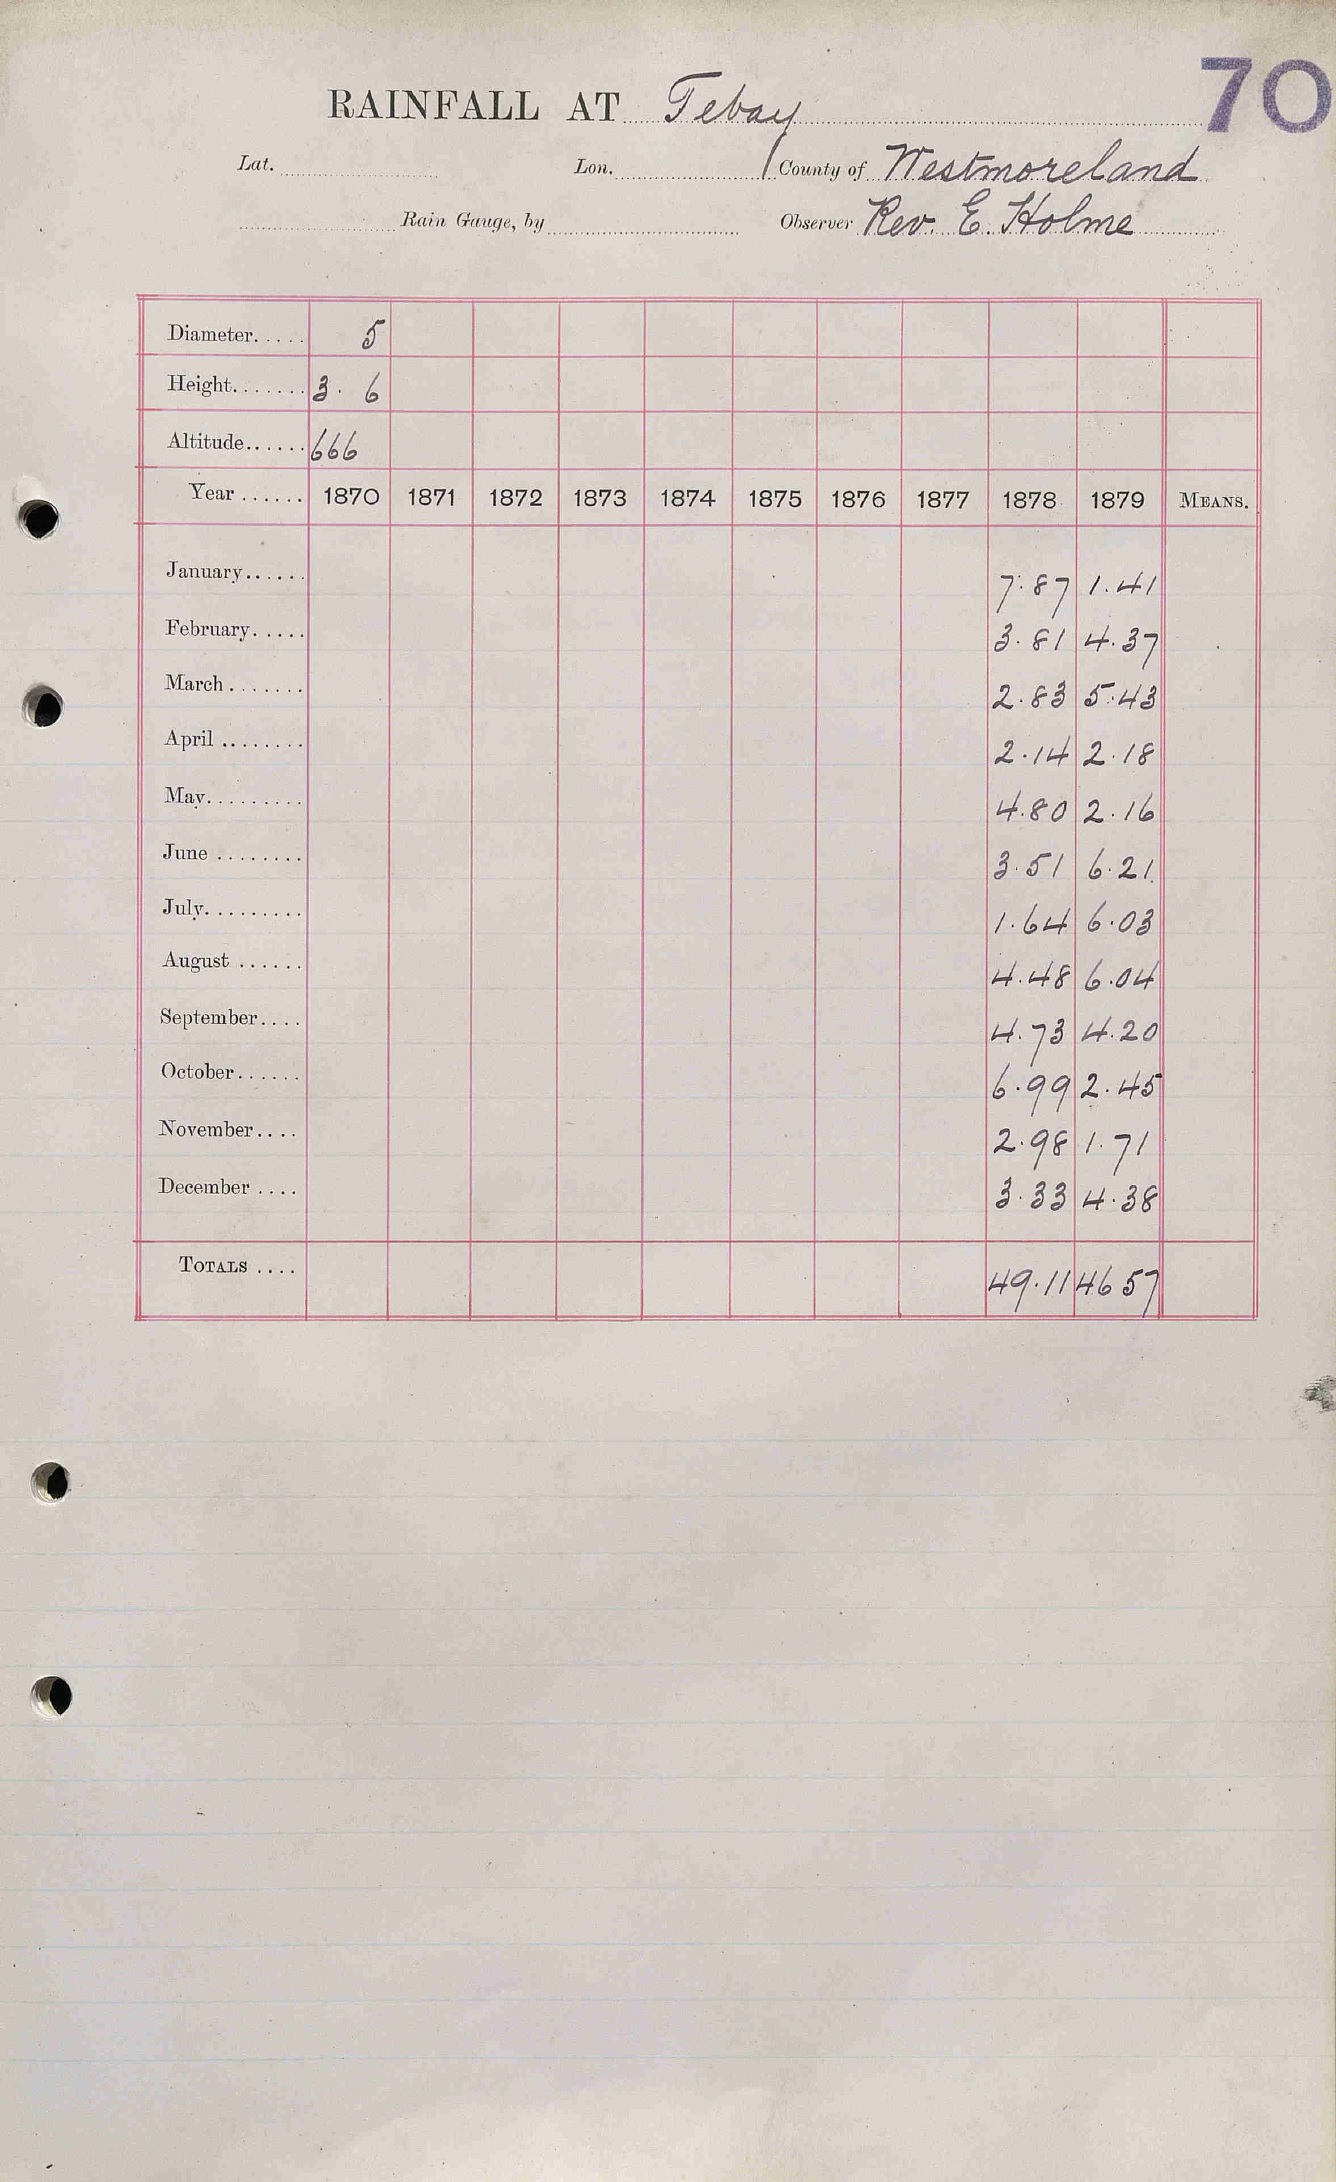 70
RAINFALL AT Tebay
Lat. Lon. County of Westmoreland
Rain Gauge, by Observer Rev. E. Holme
Diameter..... 5
Height....... 3. 6
Altitude...... 666
Year ...... 1870 1871 1872 1873 1874 1875 1876 1877 1878 1879 MEANS.
January...... 7.87 1.41
February..... 3.81 4.37
March ....... 2.83 5.43
April ........ 2.14 2.18
May......... 4.80 2.16
June ........ 3.51 6.21
July......... 1.64 6.03
August ...... 4.48 6.04
September.... 4.73 4.20
October...... 6.99 2.45
November.... 2.98 1.71
December .... 3.33 4.38
TOTALS .... 49.11 46 57